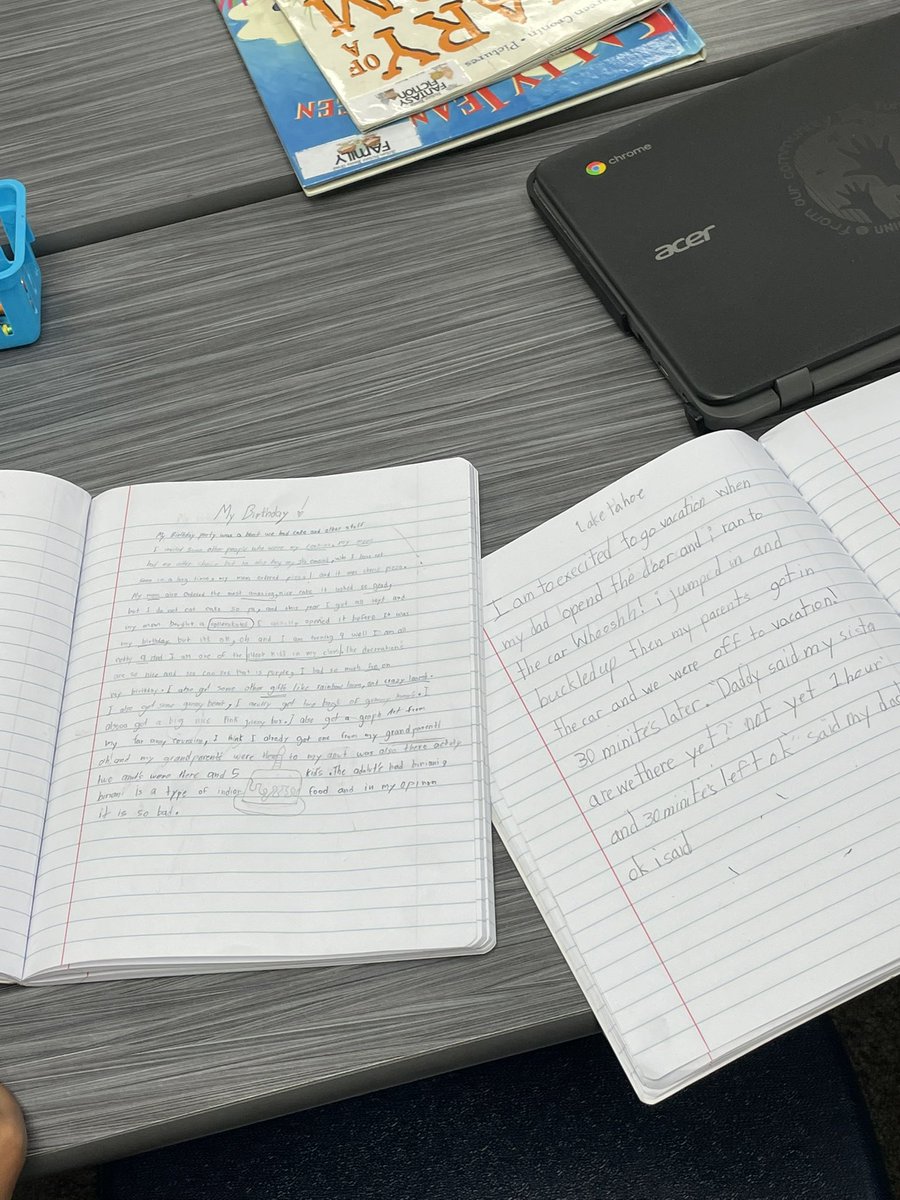 ARY
OF A
M
Doreen Cronin · Pictures
FANTASY
FICTION
ALLY JEAN
EEN
FAMILY
chrome
acer
from our community
My Birthday!
My Birthday party was a blast we had cake and other stuff
I invited some other people who were my cousins. My mom
had no other choice but to also
some in a long time, my mom ordered pizza! and it was cheese pizza.
My mom also ordered the most amazing nice cake it looked so good,
but I do not eat cake so ya, and this year I got
my mom bought a I actually opened it before it was
my birthday but it's ok, oh and I am turning 9 well I am all
redy 9 and I am one of the oldest kids in my class the decorations
are so nice and you can see that is purple, I had so much fun on
my birthday. I also got some other gifts like rainbow loom, and crazy
I also got some gummy bears, I really got two bags of gummy I
also got a big nice Pink gummy bear. I also got a gift from
my far away cousins, I think I alredy got one from my grandparents
ok and my grandparents were there to my aunt was also there actely
two aunt's were there and 5 kids. The adults had biriani
biriani is a type of indian food and in my opinon
it is so bad.
Lake tahoe
I am to execited to go vacation when
my dad opend the door and i ran to
the car Whooshh! i jumped in and
buckled up then my parents got in
the car and we were off to vacation!
30 minite's later. "Daddy said my sista
are we there yet? not yet 1 hour
and 30 minite's left ok" said my dad
ok i said